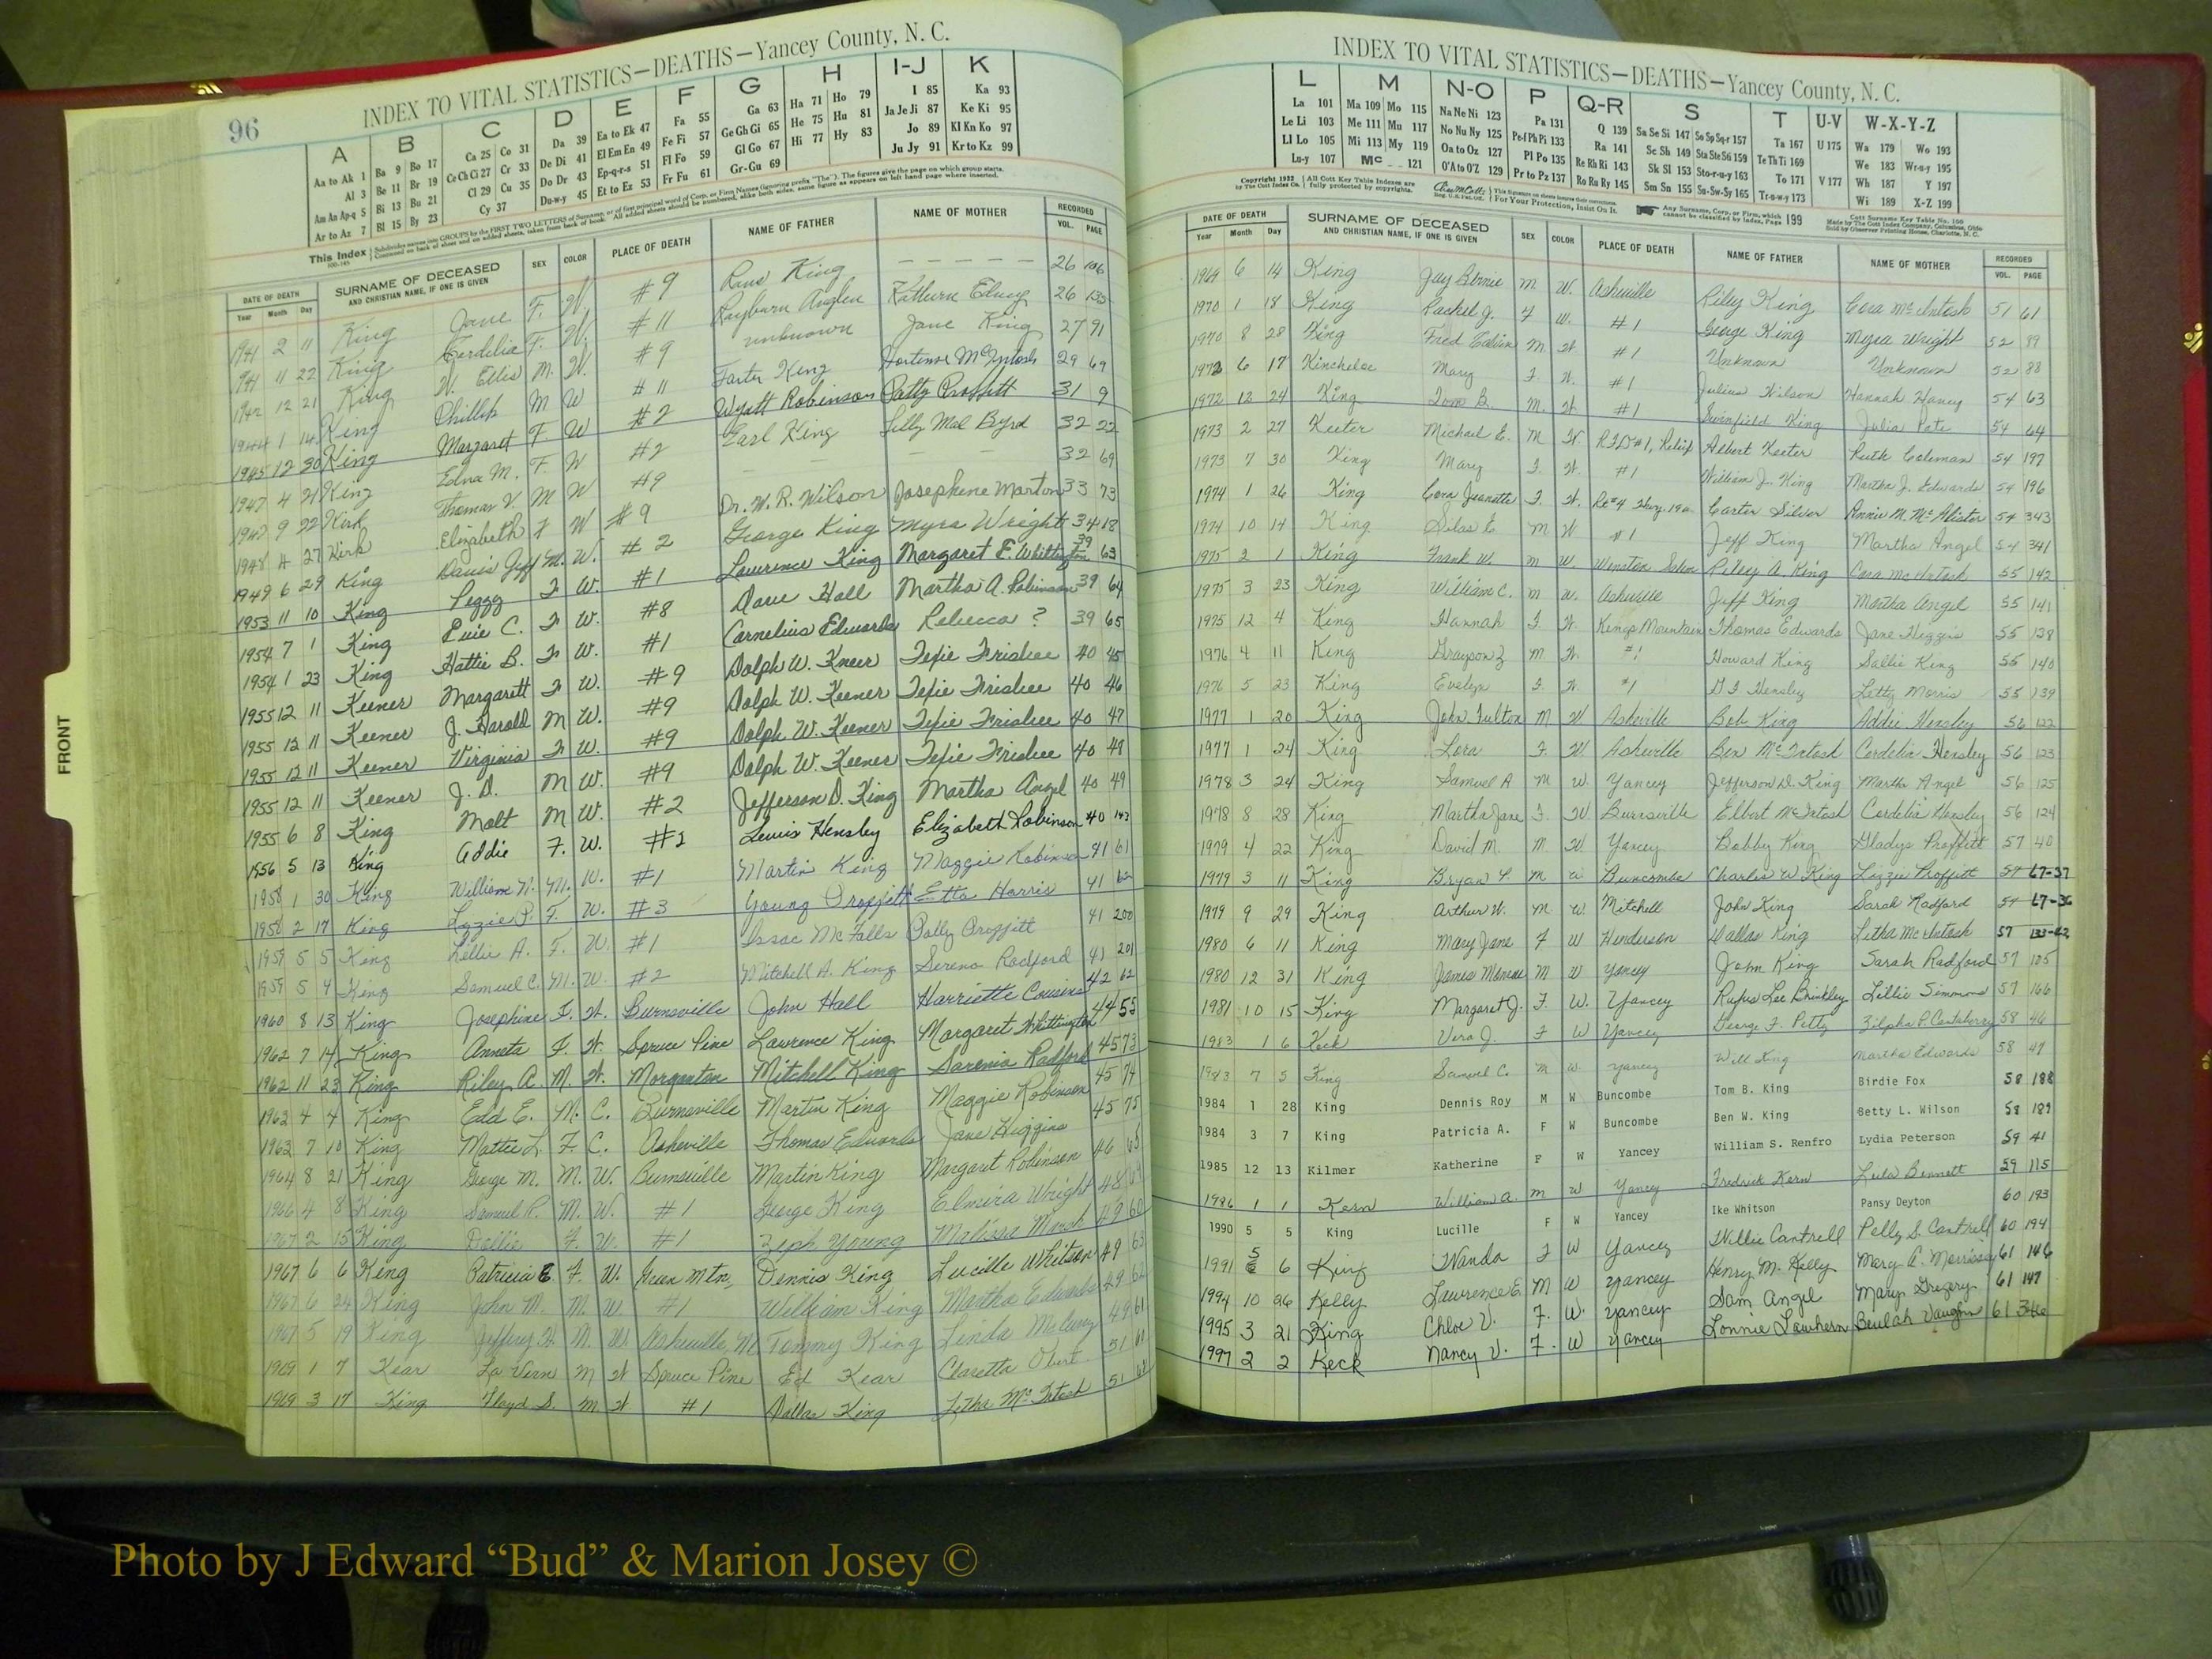 INDEX TO VITAL STATISTICS—DEATHS—Yancey County, N. C.
96
A B C D E F G H I-J K
Aa to Ak 1 Ba 9 Bo 17 Ca 25 Co 31 Da 39 Ea to Ek 47 Fa 55 Ga 63 Ha 71 Ho 79 I 85 Ka 93
Al 3 Be 11 Br 19 Ce Ch Ci 27 Cr 33 De Di 41 El Em En 49 Fe Fi 57 Ge Gh Gi 65 He 75 Hu 81 Ja Je Ji 87 Ke Ki 95
Am An Ap-q 5 Bi 13 Bu 21 Cl 29 Cu 35 Do Dr 43 Ep-q-r-s 51 Fl Fo 59 Gl Go 67 Hi 77 Hy 83 Jo 89 Kl Kn Ko 97
Ar to Az 7 Bl 15 By 23 Cy 37 Du-w-y 45 Et to Ez 53 Fr Fu 61 Gr-Gu 69 Ju Jy 91 Kr to Kz 99
This Index Subdivides names into GROUPS by the FIRST TWO LETTERS of Surname, or of first principal word of Corp. or Firm Names (ignoring prefix "The"). The figures give the page on which group starts.
Continued on back of sheet and on added sheets, taken from back of book. All added sheets should be numbered, alike both sides, same figure as appears on left hand page where inserted.
DATE OF DEATH SURNAME OF DECEASED SEX COLOR PLACE OF DEATH NAME OF FATHER NAME OF MOTHER RECORDED
Year Month Day AND CHRISTIAN NAME, IF ONE IS GIVEN VOL. PAGE
1941 2 11 King Jane F. W. #9 King 26 106
1941 11 22 King Cordelia F. W. #11 Rayburn 26 135
1942 12 21 King W. Ellis M. W. #9 unknown Jane King 27 91
1944 1 14 King Phillip M W #11 Foster King Hortense McIntosh 29 69
1945 12 30 King Margaret F. W #2 Wyatt Robinson Patty Proffitt 31 9
1947 4 21 King Edna M. F. W #2 Earl King Lilly Mae Byrd 32 22
1947 9 22 Kirk Thomas V. M W #9 32 69
1948 4 27 Kirk Elizabeth F W #9 Dr. W. R. Wilson Josephine Morton 33 73
1949 6 29 King Davis Jeff M. W. #2 George King Myra Wright 34 18
1953 11 10 King Peggy F W. #1 Lawrence King Margaret E. Whittington 39 63
1954 7 1 King Evie C. F. W. #8 Dave Hall Martha A. Robinson 39 64
1954 1 23 King Hattie B. F. W. #1 Cornelius Edwards Rebecca ? 39 65
1955 12 11 Keener Margarett F W. #9 Dolph W. Keener Texie Frisbee 40 45
1955 12 11 Keener J. Harold M W. #9 Dolph W. Keener Texie Frisbee 40 46
1955 12 11 Keener Virginia F. W. #9 Dolph W. Keener Texie Frisbee 40 47
1955 12 11 Keener J. D. M W. #9 Dolph W. Keener Texie Frisbee 40 49
1955 6 8 King Molt M W. #2 Jefferson D. King Martha Angel 40 49
1956 5 13 King Addie F. W. #1 Lewis Hensley Elizabeth Robinson 40 143
1958 1 30 King William N. M. W. #1 Martin King Maggie Robinson 41 61
1958 2 17 King Lizzie P. F. W. #3 Young Proffitt Etta Harris 41 62
1959 5 5 King Lillie A. F. W. #1 Isaac McFalls Polly Proffitt 41 200
1959 5 4 King Samuel C. M. W. #2 Mitchell A. King Serena Radford 41 201
1960 8 13 King Josephine F. W. Burnsville John Hall Harriette Cousins 42 62
1962 7 14 King Anneta F. W. Spruce Pine Lawrence King Margaret Whittington 44 55
1962 11 23 King Riley A. M. W. Morganton Mitchell King Sarenia Radford 45 73
1963 4 4 King Edd E. M. C. Burnsville Martin King Maggie Robinson 45 74
1963 7 10 King Mattie L. F. C. Asheville Thomas Edwards Jane Higgins 45 75
1964 8 21 King George M. M. W. Burnsville Martin King Margaret Robinson 46 65
1966 4 8 King Samuel R. M. W. #1 George King Elmira Wright 48
1967 2 15 King Dollie F. W. #1 Zeph Young Malissa March 49 60
1967 6 6 King Patricia E F. W. Green Mtn. Dennis King Lucille Whitson 49 63
1967 6 24 King John M. M. W #1 William King Martha Edwards 49 62
1967 5 19 King Jeffrey H. M. W Asheville, N Tommy King Linda McCurry 49 61
1969 1 7 Kear La Vern M W Spruce Pine Ed Kear Claretta Obert 51 61
1969 3 17 King Floyd S. M W #1 Dallas King Letha McIntosh 51
FRONT
INDEX TO VITAL STATISTICS—DEATHS—Yancey County, N. C.
L M N-O P Q-R S T U-V W-X-Y-Z
La 101 Ma 109 Mo 115 Na Ne Ni 123 Pa 131 Q 139 Sa Se Si 147 So Sp Sq-r 157 Ta 167 U 175 Wa 179 Wo 193
Le Li 103 Me 111 Mu 117 No Nu Ny 125 Pe-f Ph Pi 133 Ra 141 Sc Sh 149 Sta Ste Sti 159 Te Th Ti 169 We 183 Wr-u-y 195
Ll Lo 105 Mi 113 My 119 Oa to Oz 127 Pl Po 135 Re Rh Ri 143 Sk Sl 153 Sto-r-u-y 163 To 171 V 177 Wh 187 Y 197
Lu-y 107 Mc 121 O'A to O'Z 129 Pr to Pz 137 Ro Ru Ry 145 Sm Sn 155 Su-Sw-Sy 165 Tr-u-w-y 173 Wi 189 X-Z 199
Copyright 1932 by The Cott Index Co. All Cott Key Table Indexes are fully protected by copyrights. For Your Protection, Insist On It. Any Surname, Corp. or Firm, which cannot be classified by Index, Page 199
DATE OF DEATH SURNAME OF DECEASED SEX COLOR PLACE OF DEATH NAME OF FATHER NAME OF MOTHER RECORDED
Year Month Day AND CHRISTIAN NAME, IF ONE IS GIVEN VOL. PAGE
1969 6 14 King Jay Bernie M W. Asheville Riley King Cora McIntosh 51 61
1970 1 18 King Rachel J. F W. #1 George King Myra Wright 52 89
1970 8 28 King Fred M W #1 Unknown Unknown 52 88
1972 6 17 Kincheloe Mary F. W. #1 Julius Wilson Hannah Haney 54 63
1972 12 24 King Tom B. M. W #1 Swinfield King Julia Pate 54 64
1973 2 27 Keeter Michael E. M W RFD#1, Relief Albert Keeter Ruth Coleman 54 197
1973 7 30 King Mary F. W. #1 William J. King Martha J. Edwards 54 196
1974 1 26 King Cora Jeanette F. W. Rt #4 Hwy. 19E Carter Silver Annie M. McAlister 54 343
1974 10 14 King Silas E M W #1 Jeff King Martha Angel 54 341
1975 2 1 King Frank W. M W. Winston Salem Riley A. King Cora McIntosh 55 142
1975 3 23 King William C. M W. Asheville Jeff King Martha Angel 55 141
1975 12 4 King Hannah F. W. Kings Mountain Thomas Edwards Jane Higgins 55 138
1976 4 11 King Grayson Z M. W. #1 Howard King Sallie King 55 140
1976 5 23 King Evelyn F. W. #1 Hensley Letty Morris 55 139
1977 1 20 King John Fulton M W Asheville Bob King Addie Hensley 56 122
1977 1 24 King Lora F. W Asheville Ben McIntosh Cordelia Hensley 56 123
1978 3 24 King Samuel A M W. Yancey Jefferson D. King Martha Angel 56 125
1978 8 28 King Martha Jane F. W. Burnsville Elbert McIntosh Cordelia Hensley 56 124
1979 4 22 King David M. M. W. Yancey Bobby King Gladys Proffitt 57 40
1979 3 11 King Bryan Y. M W Buncombe Charlie W King Lizzie Proffitt 57 67-37
1979 9 29 King Arthur W. M W. Mitchell John King Sarah Radford 57 67-36
1980 6 11 King Mary Jane F W Henderson Dallas King Letha McIntosh 57 133-62
1980 12 31 King James Monroe M W Yancey John King Sarah Radford 57 125
1981 10 15 King Margaret J. F. W. Yancey Rufus Lee Brinkley Lillie Simmons 57 166
1983 1 6 Keck Vera J. F W Yancey George F. Petty Zilpha P. Canteberry 58 46
1983 7 5 King Samuel C. M W. Yancey Will King Martha Edwards 58 47
1984 1 28 King Dennis Roy M W Buncombe Tom B. King Birdie Fox 58 188
1984 3 7 King Patricia A. F W Buncombe Ben W. King Betty L. Wilson 58 189
1985 12 13 Kilmer Katherine F W Yancey William S. Renfro Lydia Peterson 59 41
1986 1 1 Kern William A. M W Yancey Fredrick Kern Lula Bennett 59 115
1990 5 5 King Lucille F W Yancey Ike Whitson Pansy Deyton 60 193
1991 5 6 King Wanda F W Yancey Willie Cantrell Polly S. Cantrell 60 194
1994 10 26 Kelly Lawrence E. M W Yancey Henry M. Kelly Mary A. Morrissey 61 146
1995 3 21 King Chloe V. F. W. Yancey Sam Angel Mary Gregory 61 147
1997 2 2 Keck Nancy V. F. W Yancey Lonnie Lawhern Beulah Vaughn 61 346
Photo by J Edward “Bud” & Marion Josey ©